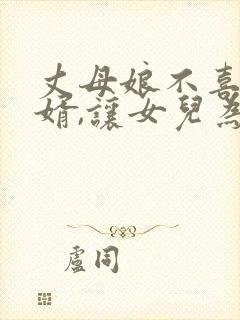 丈母娘不喜
婿,讓女兒為
盧同